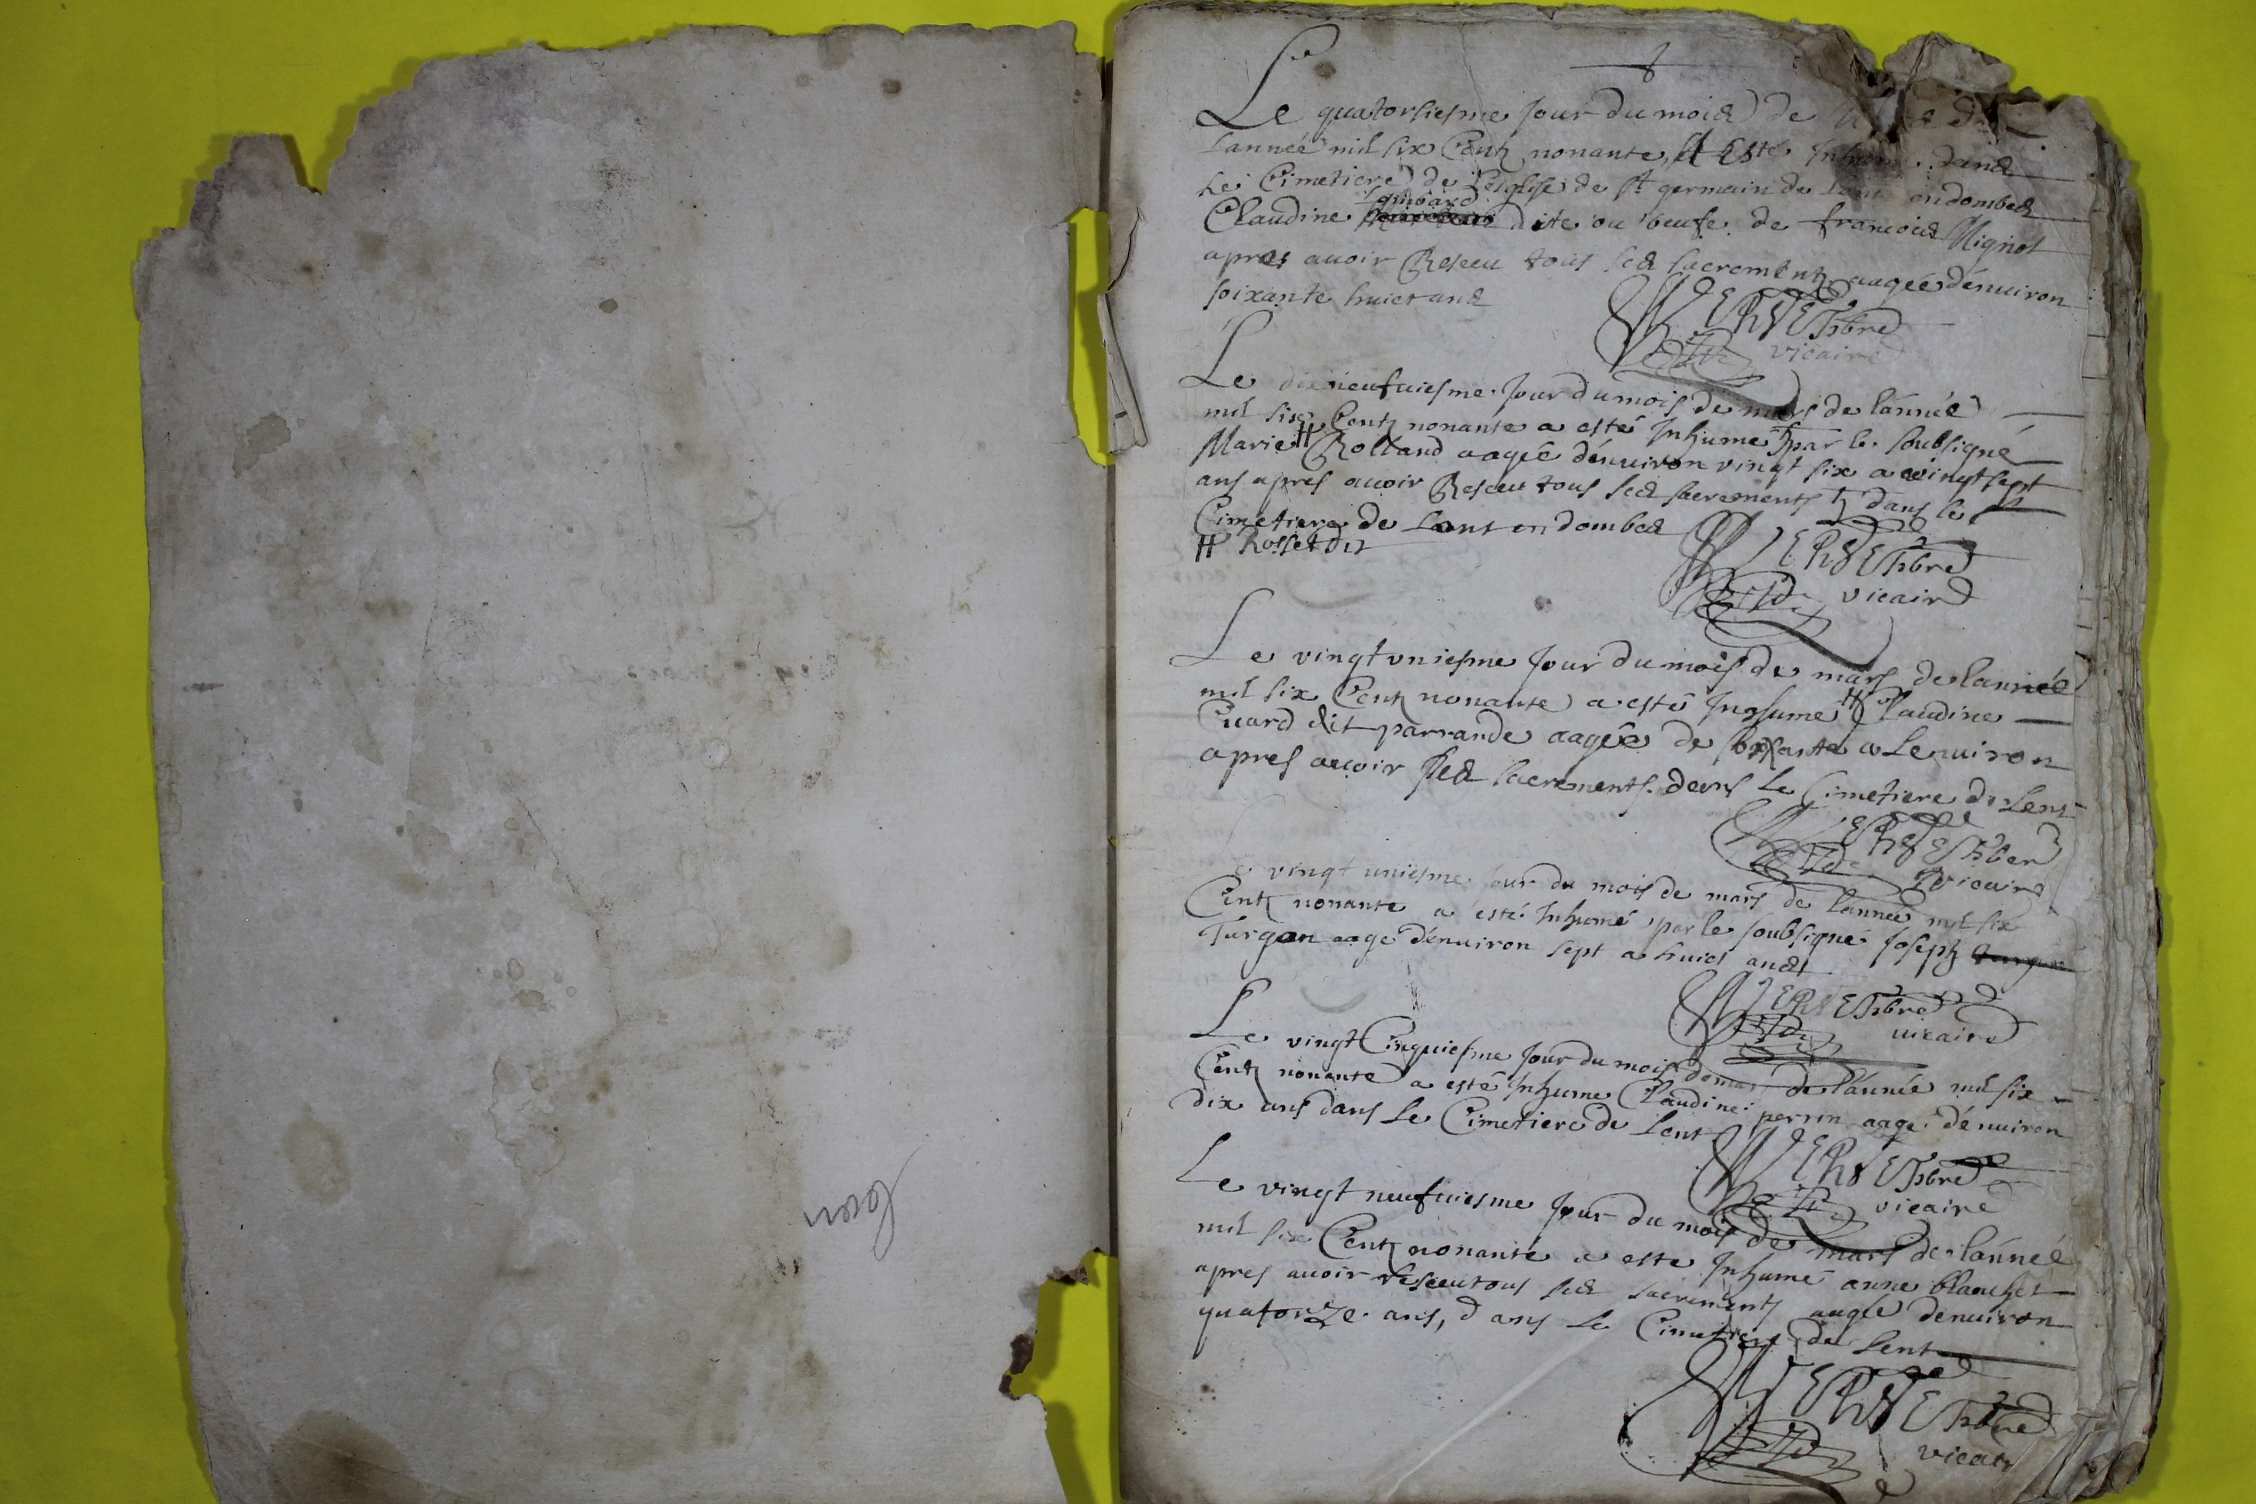 Le quatorsiesme Jour du mois de
lannéé mil six Centz nonante, A Esté Inhumé dans
Le Cimetiere de Leglise de st germain de Lent en dombes
Claudine dite ou veufe de francois Mignot
apres auoir Resceu tous ses sacrementz aagéé dénuiron
soixante huict ans
ptbre
vicaire
Le dixneufuiesme Jour du mois de mars de lánnéé
mil six Centz nonante a esté Inhumé par le soubsigné
Marie # Rolland aagéé dénuiron vingt six a vingt sept
ans apres auoir Resceu tous ses sacrements dans le
Cimetiere de Lent en dombes
# Rosset dit
ptbre
vicaire
Le vingt vniesme Jour du mois de mars de lannéé
mil six Centz nonante a esté Inhumé Claudine
Cuard dit parrande aagéé de soixante a Lenuiron
apres auoir ses sacrements dans Le Cimetiere de Lent
vicaire
vingt uniesme Jour du mois de mars de lánnéé mil six
Centz nonante a esté Inhumé par le soubsigné Joseph
Turgon aage dénuiron sept a huict ans
ptbre
uicaire
Le vingt Cinquiesme Jour du mois de mars de lánnéé mil six
Centz nonante a esté Inhume Claudine perrin aage dénuiron
dix ans dans Le Cimetiere de Lent
ptbre
vicaire
Le vingt neufuiesme Jour du mois de mars de lánnéé
mil six Centz nonante a este Inhumé anne blanchet
apres auoir resceu tous ses sacrements aagéé denuiron
quatorze ans, dans Le Cimetiere de Lent
ptbre
vicair